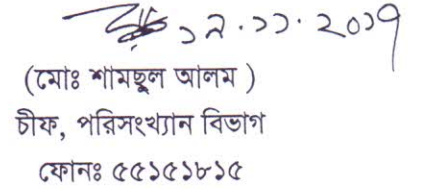 ১৯.১১.২০১৭
(মোঃ শামছুল আলম )
চীফ, পরিসংখ্যান বিভাগ
ফোনঃ ৫৫১৫১৮১৫